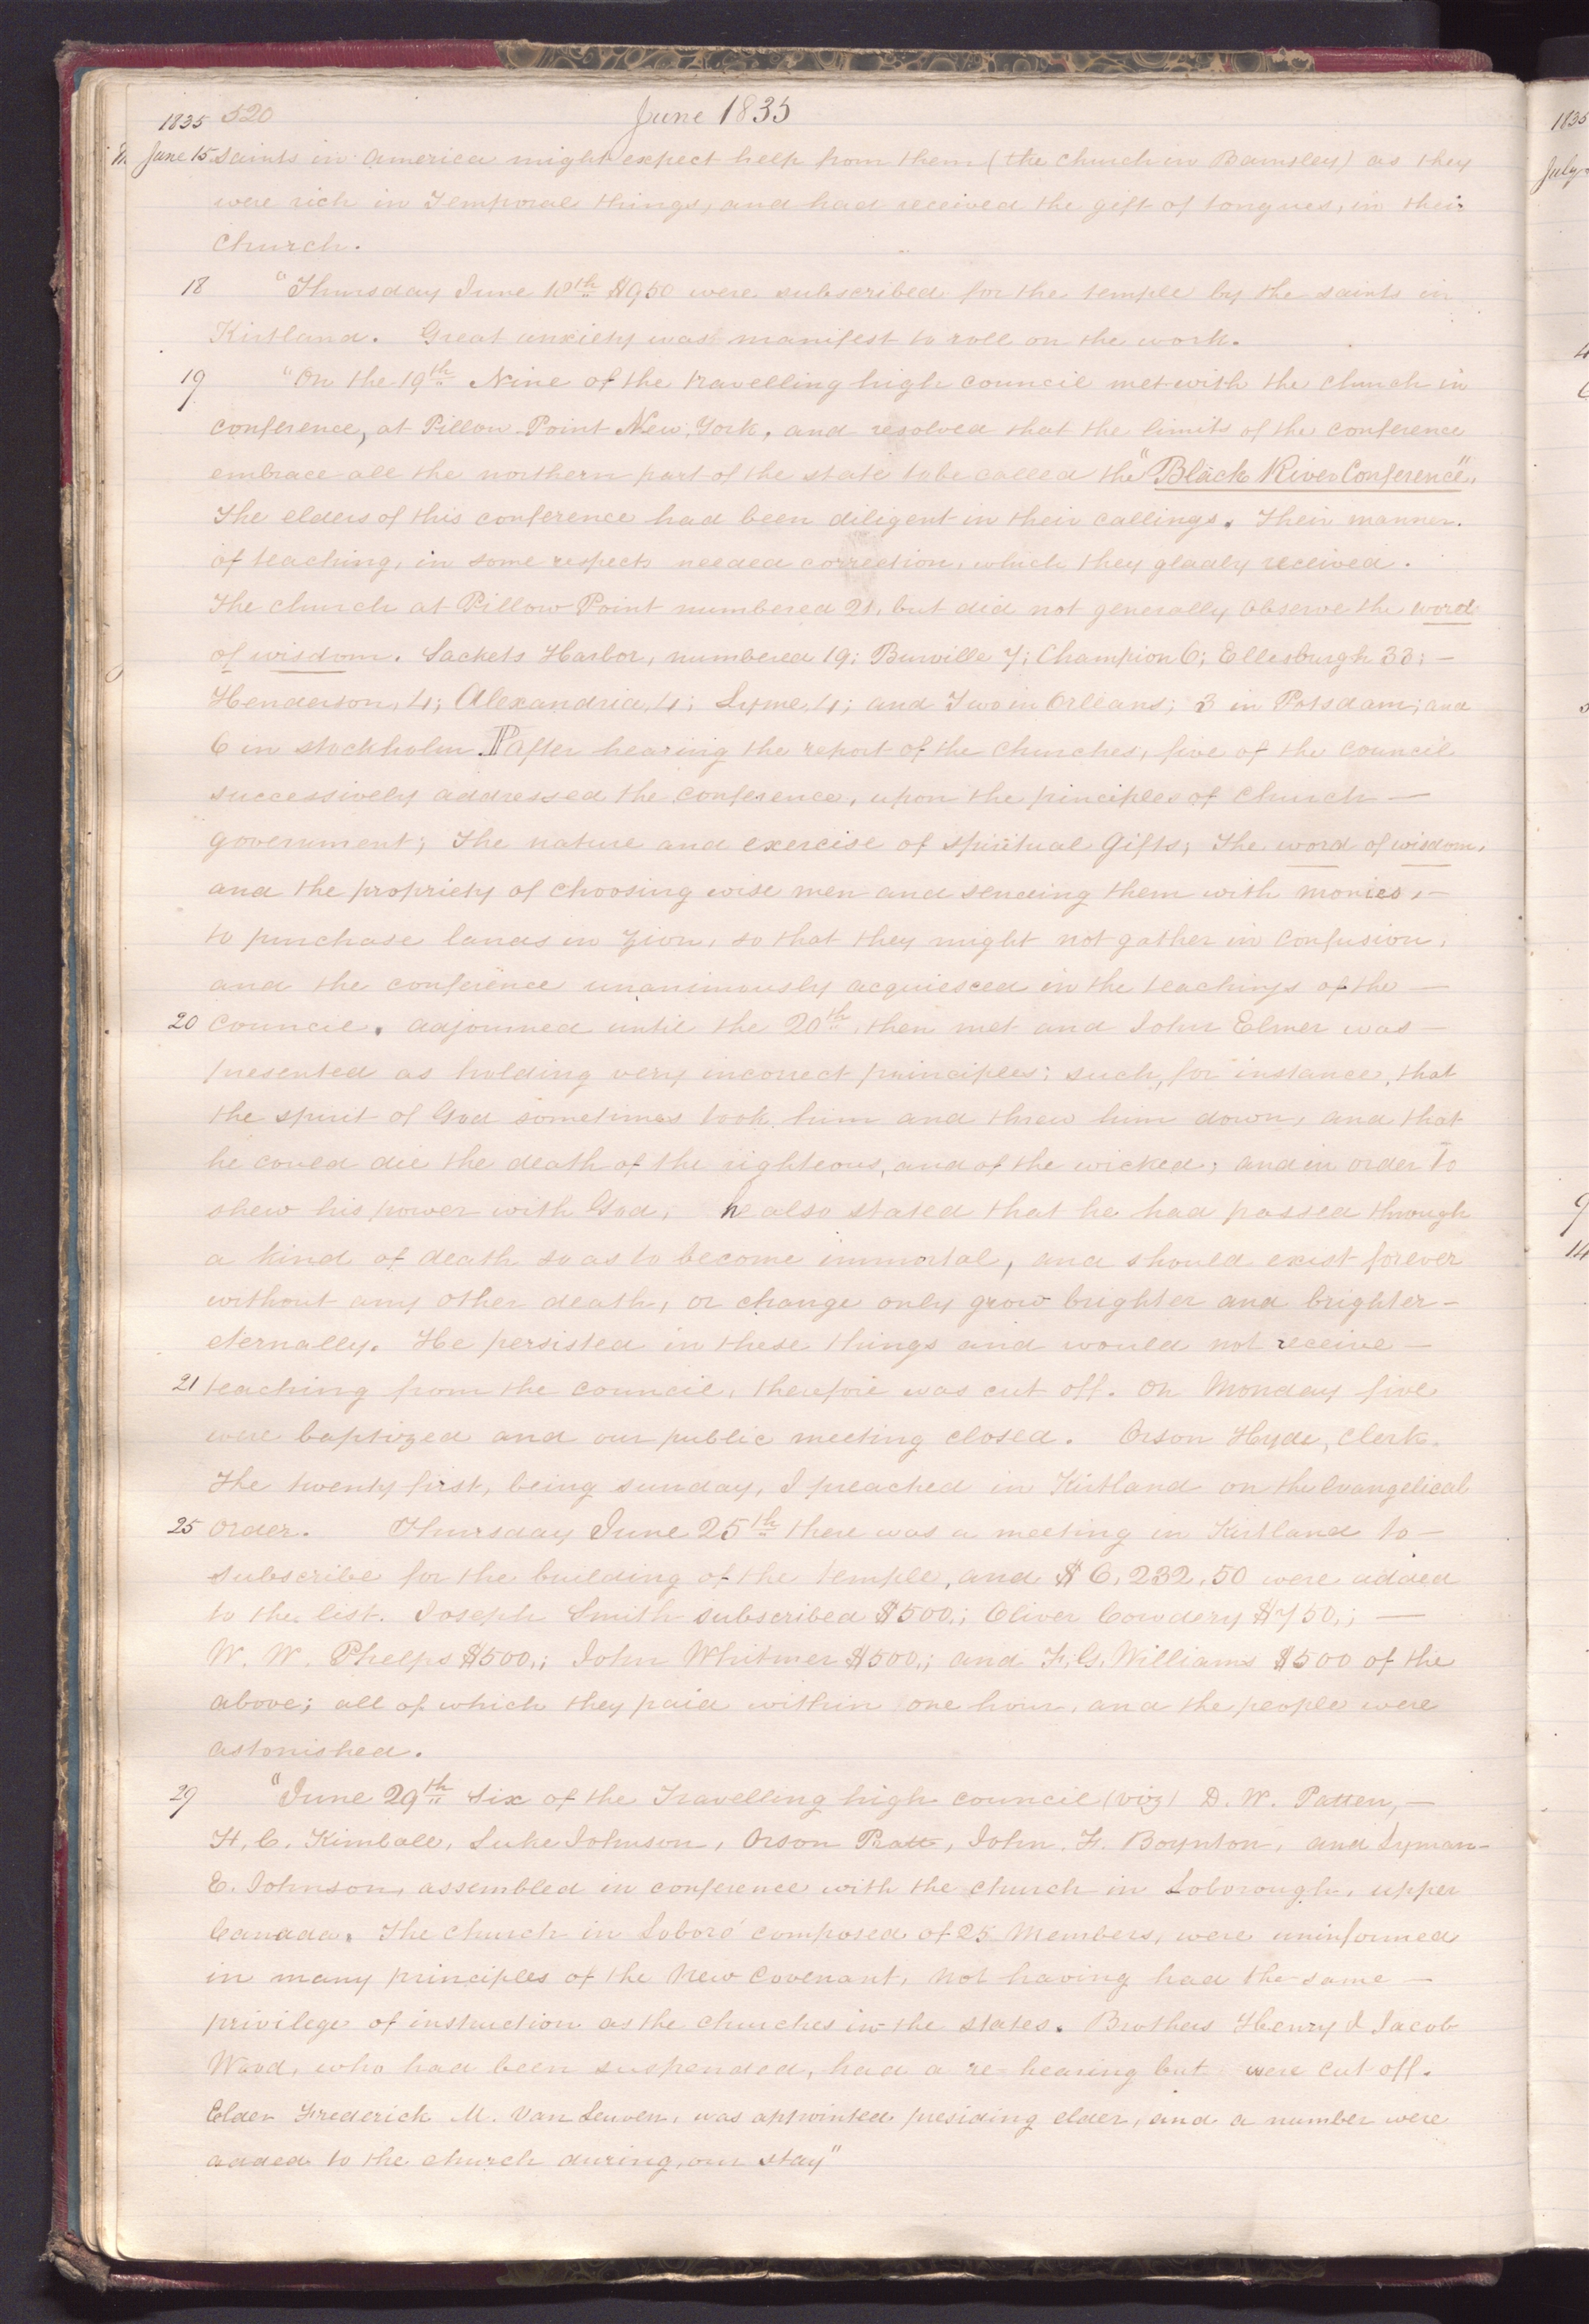 1835 520 June 1835
June 15 saints in America might expect help from them (the church in Barnsley) as they
were rich in Temporal things, and had received the gift of tongues, in their
Church.
18 "Thursday June 18th $950 were subscribed for the temple by the saints in
Kirtland. Great anxiety was manifest to roll on the work.
19 "On the 19th Nine of the travelling high council met with the church in
conference, at Pillow Point New York, and resolved that the limits of the conference
embrace all the northern part of the state to be called the "Black River Conference",
The elders of this conference had been diligent in their callings. Their manner
of teaching, in some respects needed correction, which they gladly received.
The church at Pillow Point numbered 21, but did not generally observe the word
of wisdom. Sackets Harbor, numbered 19; Burville 7; Champion 6; Ellesburgh 33; –
Henderson, 4; Alexandria, 4; Lyme, 4; and Two in Orleans; 3 in Potsdam; and
6 in Stockholm ¶ After hearing the report of the Churches, five of the council
successively addressed the conference, upon the principles of church –
government; The nature and exercise of spiritual Gifts; The word of wisdom,
and the propriety of choosing wise men and sending them with monies, –
to purchase lands in Zion, so that they might not gather in confusion,
and the conference unanimously acquiesced in the teachings of the –
20 council. adjourned until the 20th, then met and John Elmer was –
presented as holding very incorrect principles; such, for instance, that
the spirit of God sometimes took him and threw him down, and that
he could die the death of the righteous, and of the wicked; and in order to
shew his power with God, he also stated that he had passed through
a kind of death so as to become immortal, and should exist forever
without any other death, or change only grow brighter and brighter –
eternally. He persisted in these things and would not receive –
21 teaching from the council, therefore was cut off. On Monday five
were baptized and our public meeting closed. Orson Hyde, Clerk.
The twenty first, being sunday, I preached in Kirtland on the Evangelical
25 Order. Thursday June 25th there was a meeting in Kirtland to –
subscribe for the building of the temple, and $6,232,50 were added
to the list. Joseph Smith subscribed $500,; Oliver Cowdery $750,; –
W. W. Phelps $500,; John Whitmer $500,; and F. G. Williams $500 of the
above; all of which they paid within one hour, and the people were
astonished.
29 "June 29th Six of the Travelling high council (viz) D. W. Patten, –
H. C. Kimball, Luke Johnson, Orson Pratt, John. F. Boynton, and Lyman –
E. Johnson, assembled in conference with the church in Loborough, upper
Canada. The church in Loboro' composed of 25 Members, were uninformed
in many principles of the New Covenant, not having had the same –
privilege of instruction as the churches in the states. Brothers Henry & Jacob
Wood, who had been suspended, had a re-hearing but were cut off.
Elder Frederick M. Van Leuven, was appointed presiding elder, and a number were
added to the church during our stay"
1835
July
4
9
14